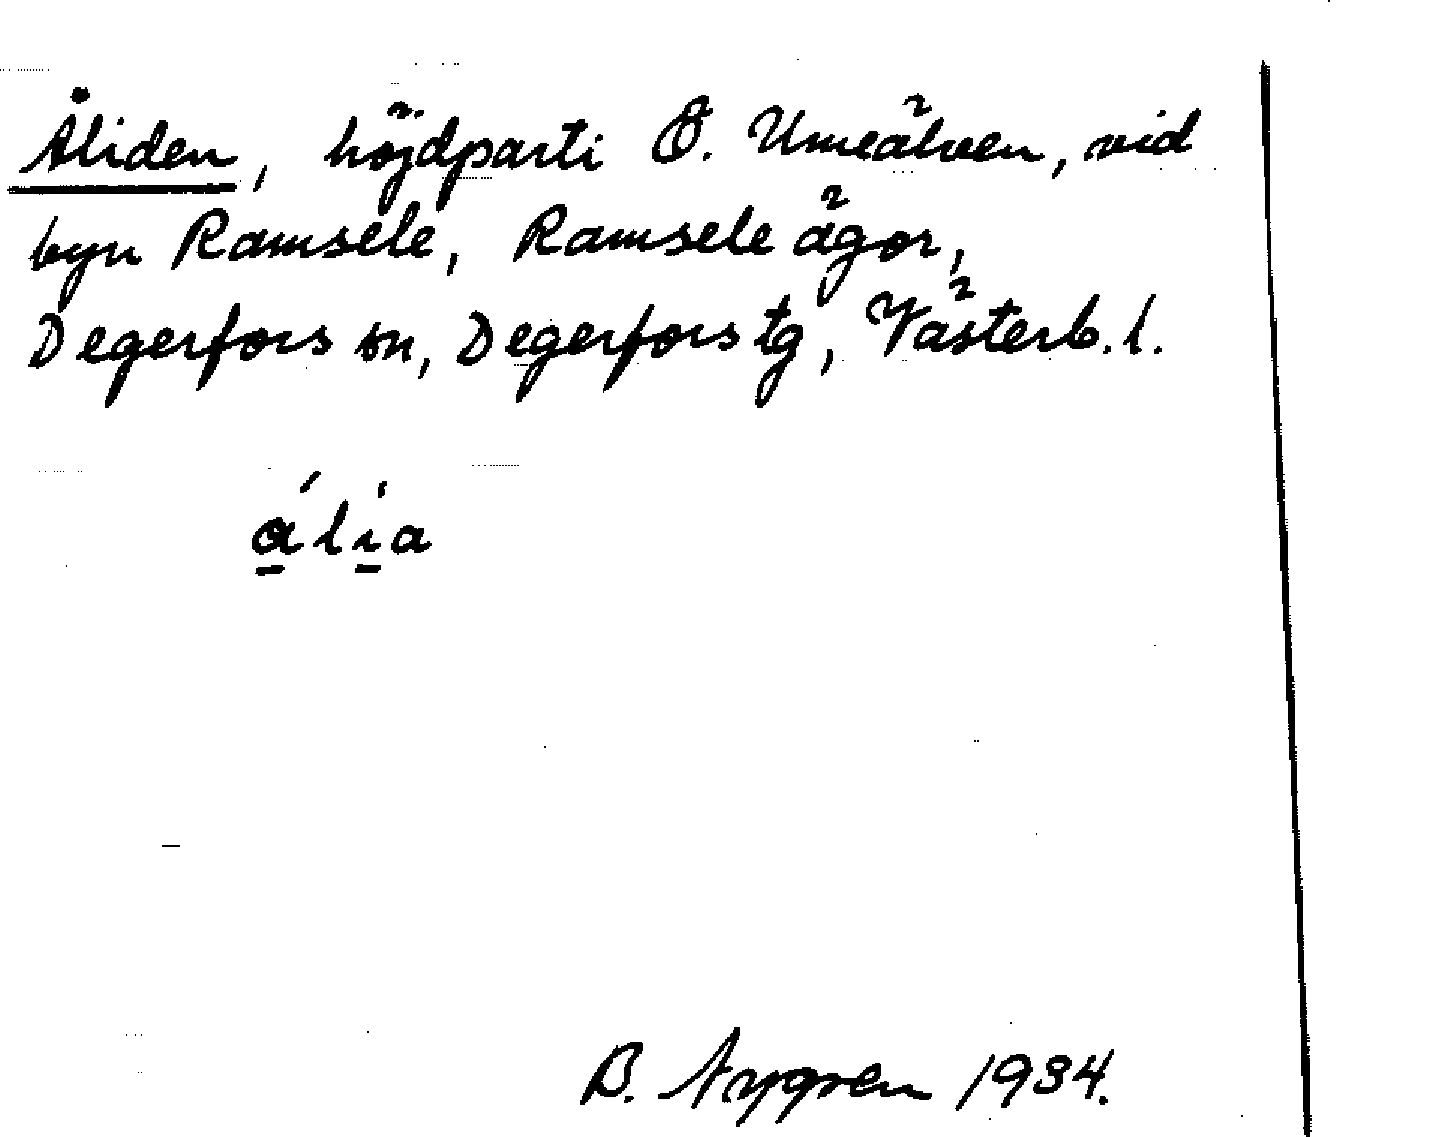 Åliden, höjdparti Ö. Umeälven, vid
byn Ramsele, Ramsele ägor,
Degerfors sn, Degerfors tg, Västerb. l.
á̱lí̱a
B. Nygren 1934.